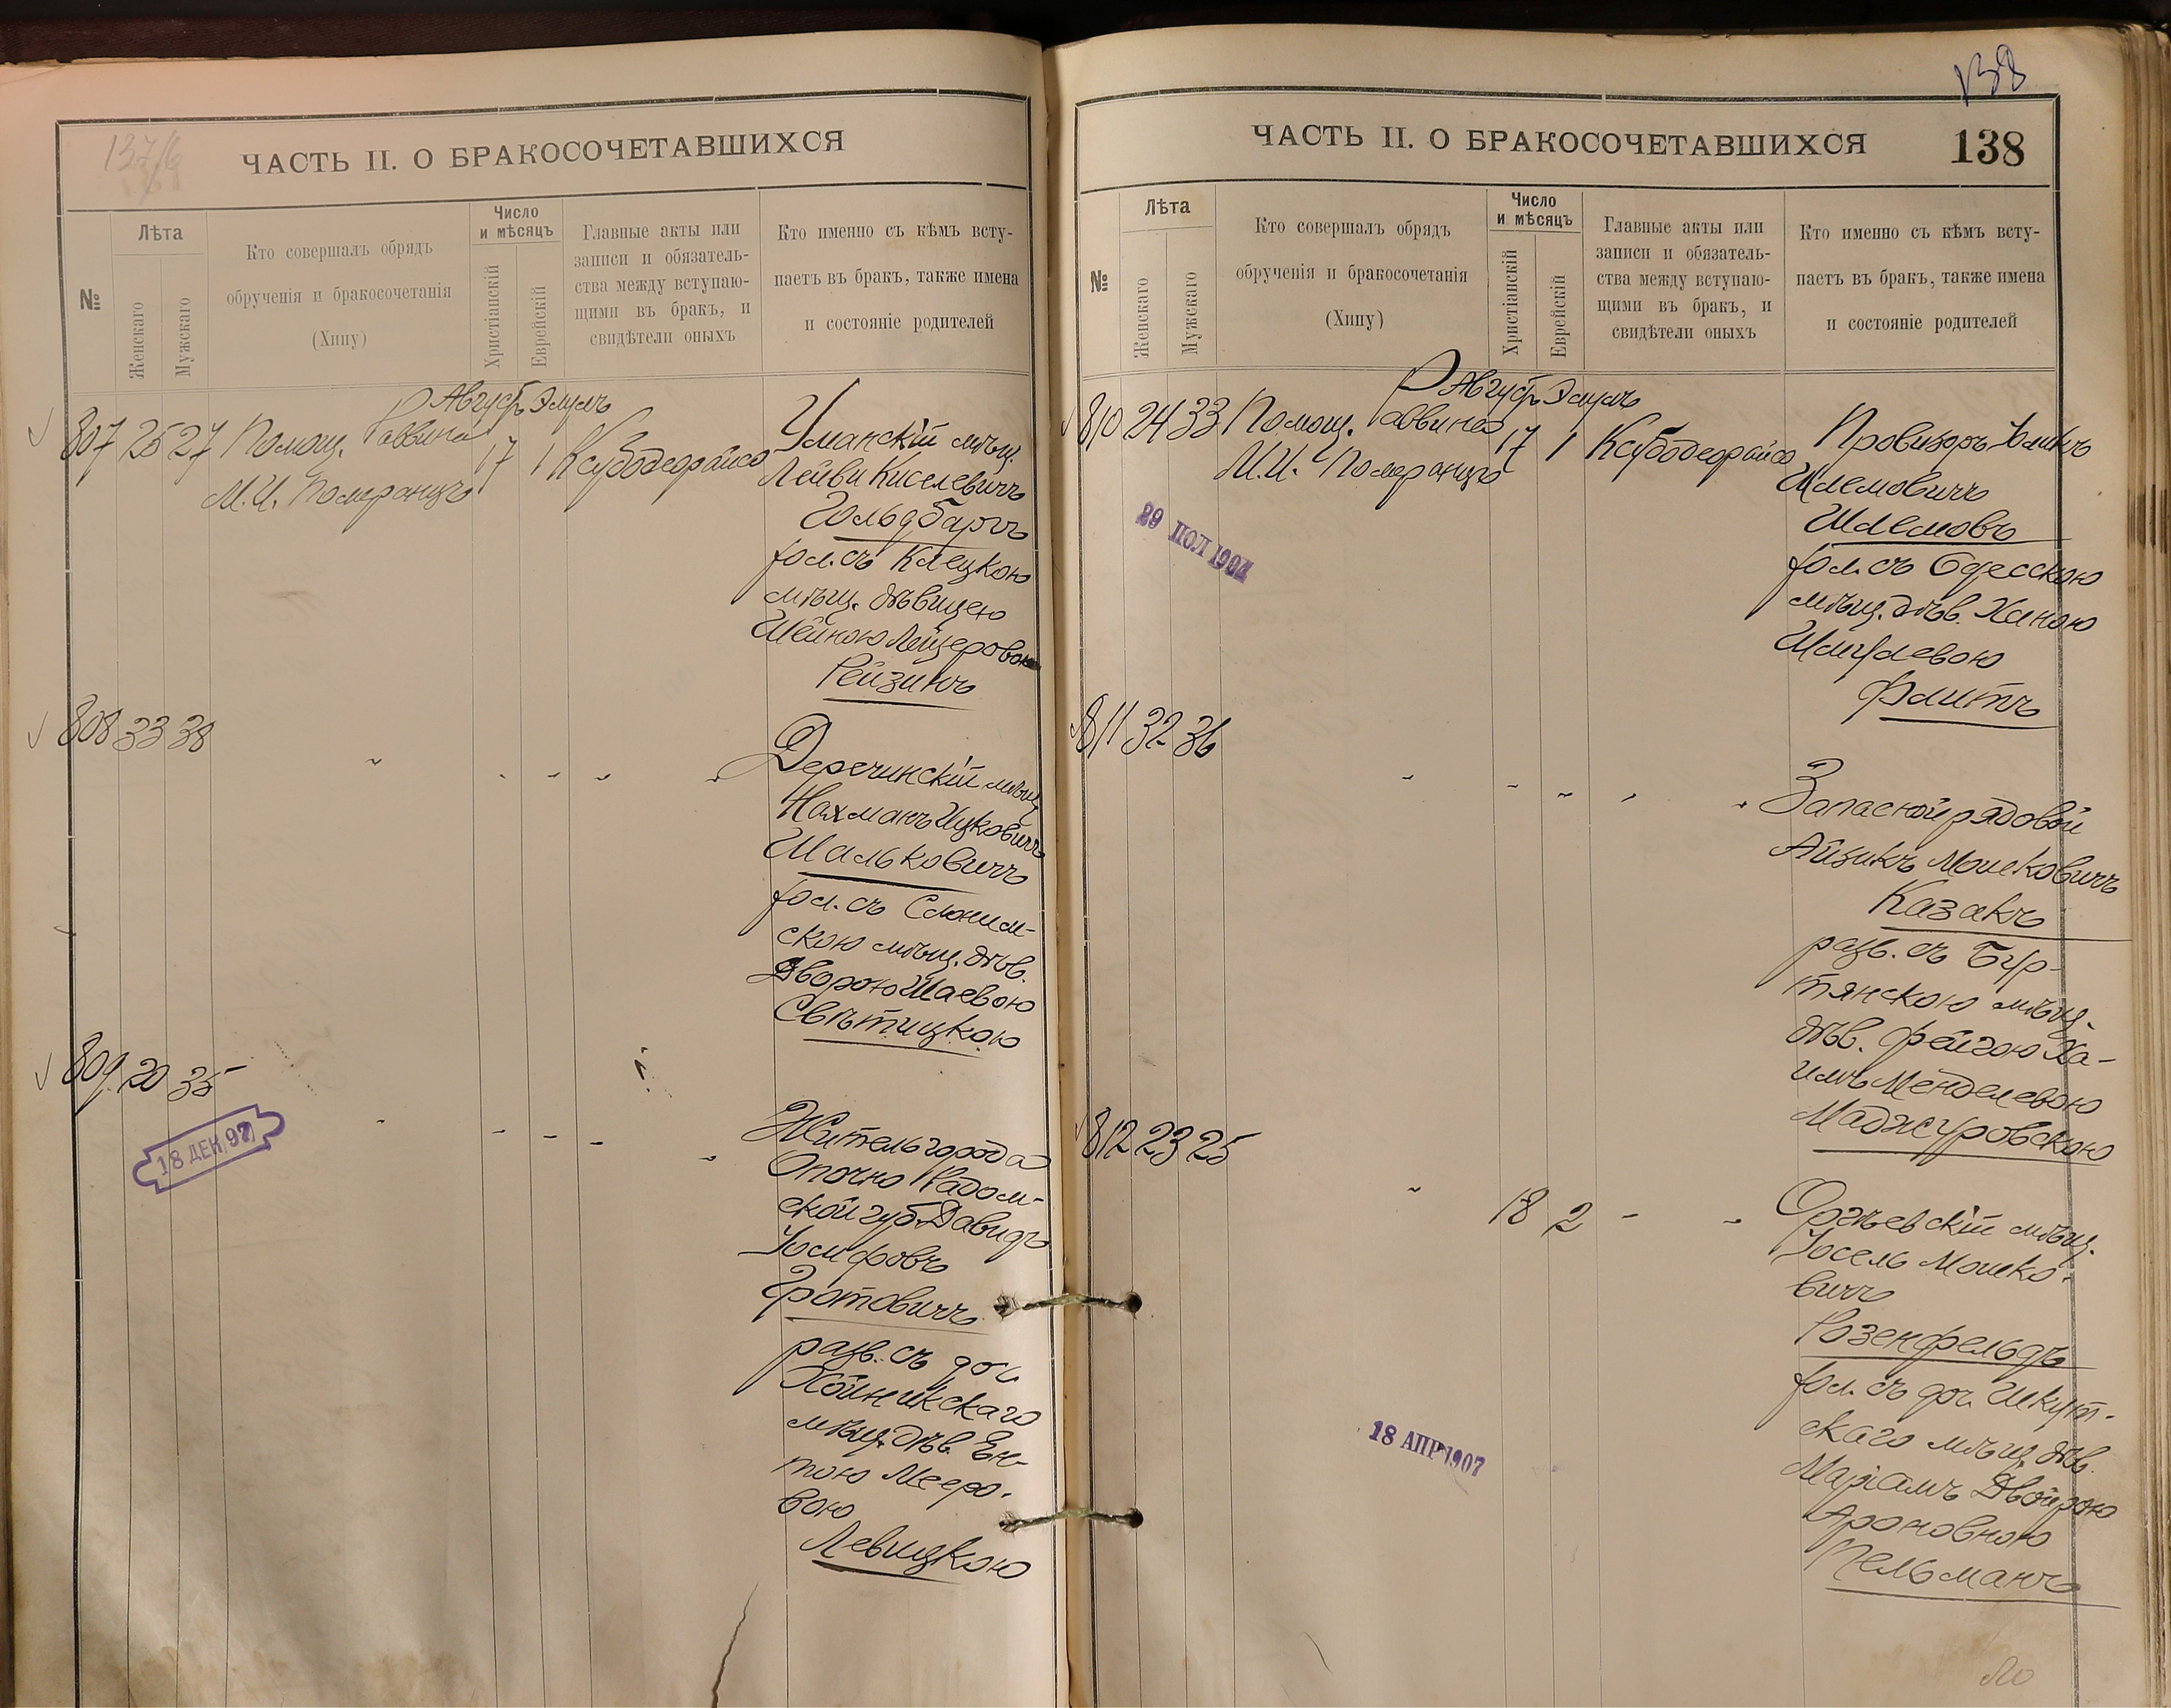 137/б
ЧАСТЬ II. О БРАКОСОЧЕТАВШИХСЯ
№
Лѣта
Женскаго
Мужскаго
Кто совершалъ обрядъ
обрученія и бракосочетанія
(Хипу)
Число
и мѣсяцъ
Христіанскій
Еврейскій
Главные акты или
записи и обязатель-
ства между вступаю-
щими въ бракъ, и
свидѣтели оныхъ
Кто именно съ кѣмъ всту-
паетъ въ бракъ, также имена
и состояніе родителей
Август. Элулъ
807 25 27 Помощ. Раввина 17 1 Ксубодеорайсо
М.И. Померанцъ
Уманскій мѣщ.
Лейви Киселевичъ
Гольдбаргъ
хол. съ Клецкою
мѣщ. дѣвицею
Шейною Лейзеровою
Рейзинъ
808 33 38
Деречинскій мѣщ.
Нахманъ Ицковичъ
Шальковичъ
хол. съ Слоним-
скою мѣщ. дѣв.
Дворою Шаевою
Свѣтицкою
809 20 35
18 ДЕК 97
Житель города
Опочно Радом-
ской губ. Давидъ
Іосифовъ
Гротовичъ
разв. съ доч.
Хойникскаго
мѣщ. дѣв. Ен-
тою Мееро-
вою
Левицкою
138
ЧАСТЬ II. О БРАКОСОЧЕТАВШИХСЯ
138
№
Лѣта
Женскаго
Мужскаго
Кто совершалъ обрядъ
обрученія и бракосочетанія
(Хипу)
Число
и мѣсяцъ
Христіанскій
Еврейскій
Главные акты или
записи и обязатель-
ства между вступаю-
щими въ бракъ, и
свидѣтели оныхъ
Кто именно съ кѣмъ всту-
паетъ въ бракъ, также имена
и состояніе родителей
Август. Элулъ
810 24 33 Помощ. Раввина 17 1 Ксубодеорайсо
М.И. Померанцъ
29 ІЮЛ 1904
Провизоръ
Шлемовичъ
Шлемовъ
хол. съ Одесскою
мѣщ. дѣв. Ханою
Шмулевою
Флитъ
811 32 36
Запасной рядовой
Айзикъ Мошковичъ
Казакъ
разв. съ Бур-
тянскою мѣщ.
дѣв. Фейгою Ха-
имъ Менделевою
Маджуровскою
812 23 25
18 2
Оргѣевскій мѣщ.
Іосель Мошко-
вичъ
Розенфельдъ
хол. съ доч. Шкунт-
скаго мѣщ. дѣв.
Маріамъ Двойрою
Ароновною
Пельманъ
18 АПР 1907